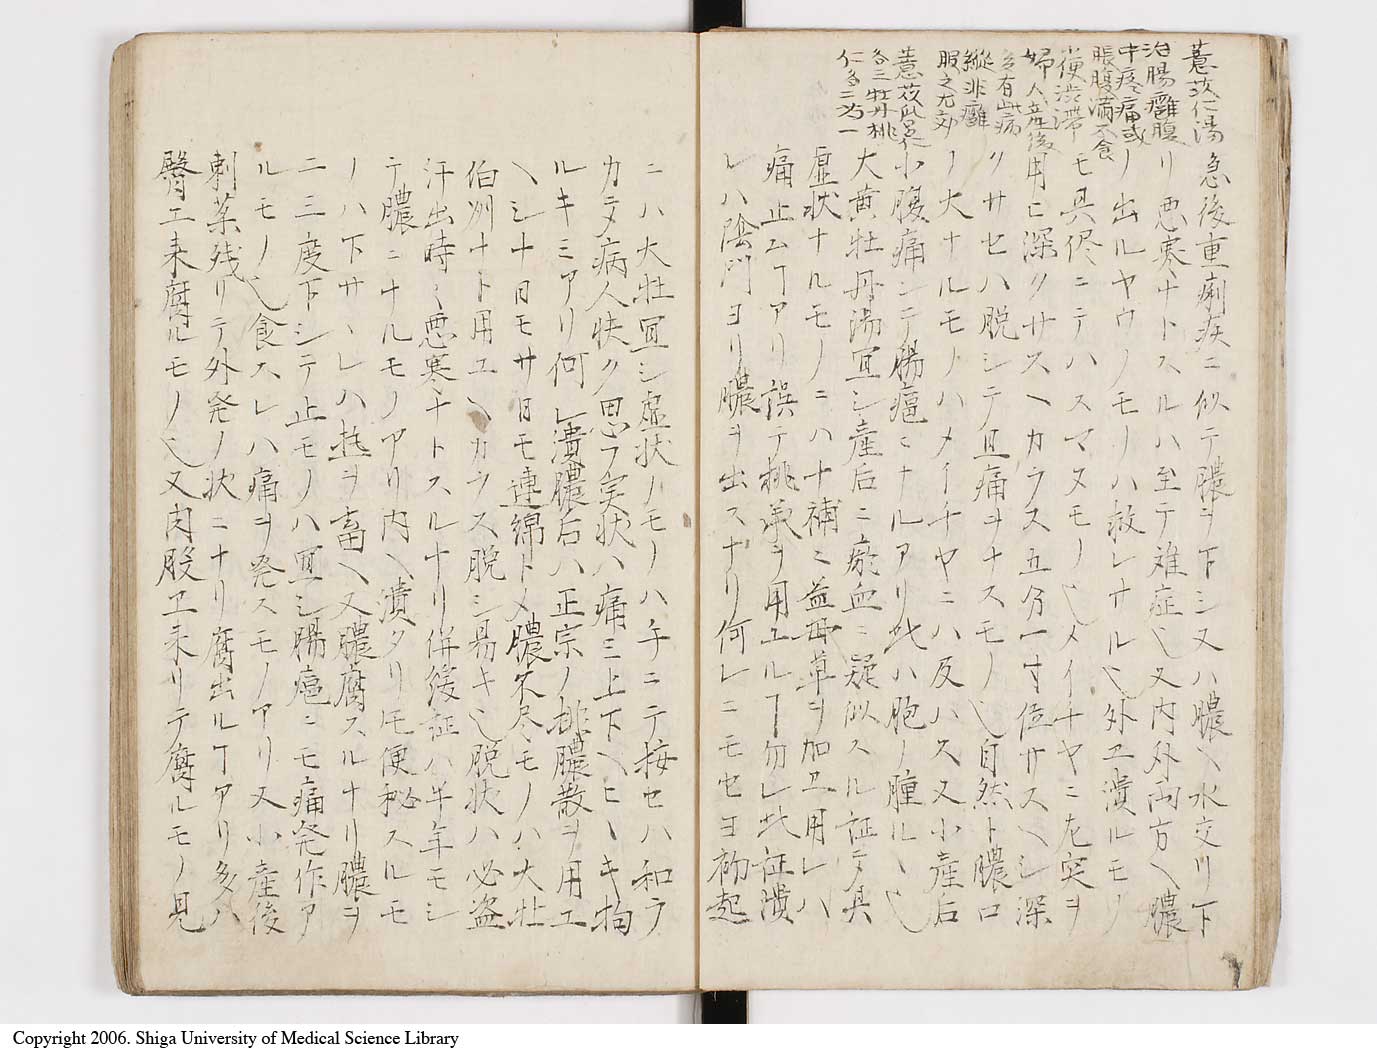 薏苡仁湯
治腸癰腹
中疼痛或
脹腹満不食
小便渋滞
婦人産後
多有此病
縦非癰
服之尤効
薏苡瓜
各三牡丹桃
仁各二為一
急後重痢疾ニ似テ膿ヲ下シ又ハ膿ヘ水交リ下
リ悪寒ナトスルハ至テ難症也又内外両方ヘ膿
ノ出ルヤウノモノハ救レサル也外エ潰ルモノ
モ具侭ニテハスマヌモノ也メイチヤニ左突ヲ
用ヒ深クサスヘカラス五分一寸位サスヘシ深
クサセハ脱シテ且痛ヲナスモノ也自然ト膿口
ノ大ナルモノハメイチヤニハ及ハス又小産后
小腹痛シテ腸癌ニナルアリ此ハ胞ノ腫ルヽ也
大黄牡丹湯冝シ産后ニ瘀血ニ疑似スル証ヲ具
虚状ナルモノニハ十補ニ益母草ヲ加エ用レハ
痛止ムヿアリ誤テ桃承ヲ用エルヿ勿レ此証潰
レハ陰門ヨリ膿ヲ出スナリ何レニモセヨ初起
ニハ大牡冝シ虚状ノモノハ手ニテ按セハ和ラ
カニテ病人快ク思フ実状ハ痛ミ上下ヘヒヽキ拘
ルキミアリ何レ潰膿后ハ正宗ノ排膿散ヲ用エ
ヘシ十日モサ日モ連綿トメ膿不尽モノハ大牡
伯州ナト用ユヘカラス脱シ易キ也脱状ハ必盗
汗出時々悪寒ナトスルナリ併緩証ハ半年モシ
テ膿ニナルモノアリ内ヘ潰タリ圧便秘スルモ
ノハ下サヽレハ熱ヲ畜ヘ又膿腐スルナリ膿ヲ
二三度下シテ止モノハ冝シ腸癌ニモ痛発作ア
ルモノ也食スレハ痛ヲ発スモノアリ又小産後
刺薬残リテ外発ノ状ニナリ腐出ルヿアリ多ハ
臀エ来腐ルモノ也又肉股エ来リテ腐ルモノ見